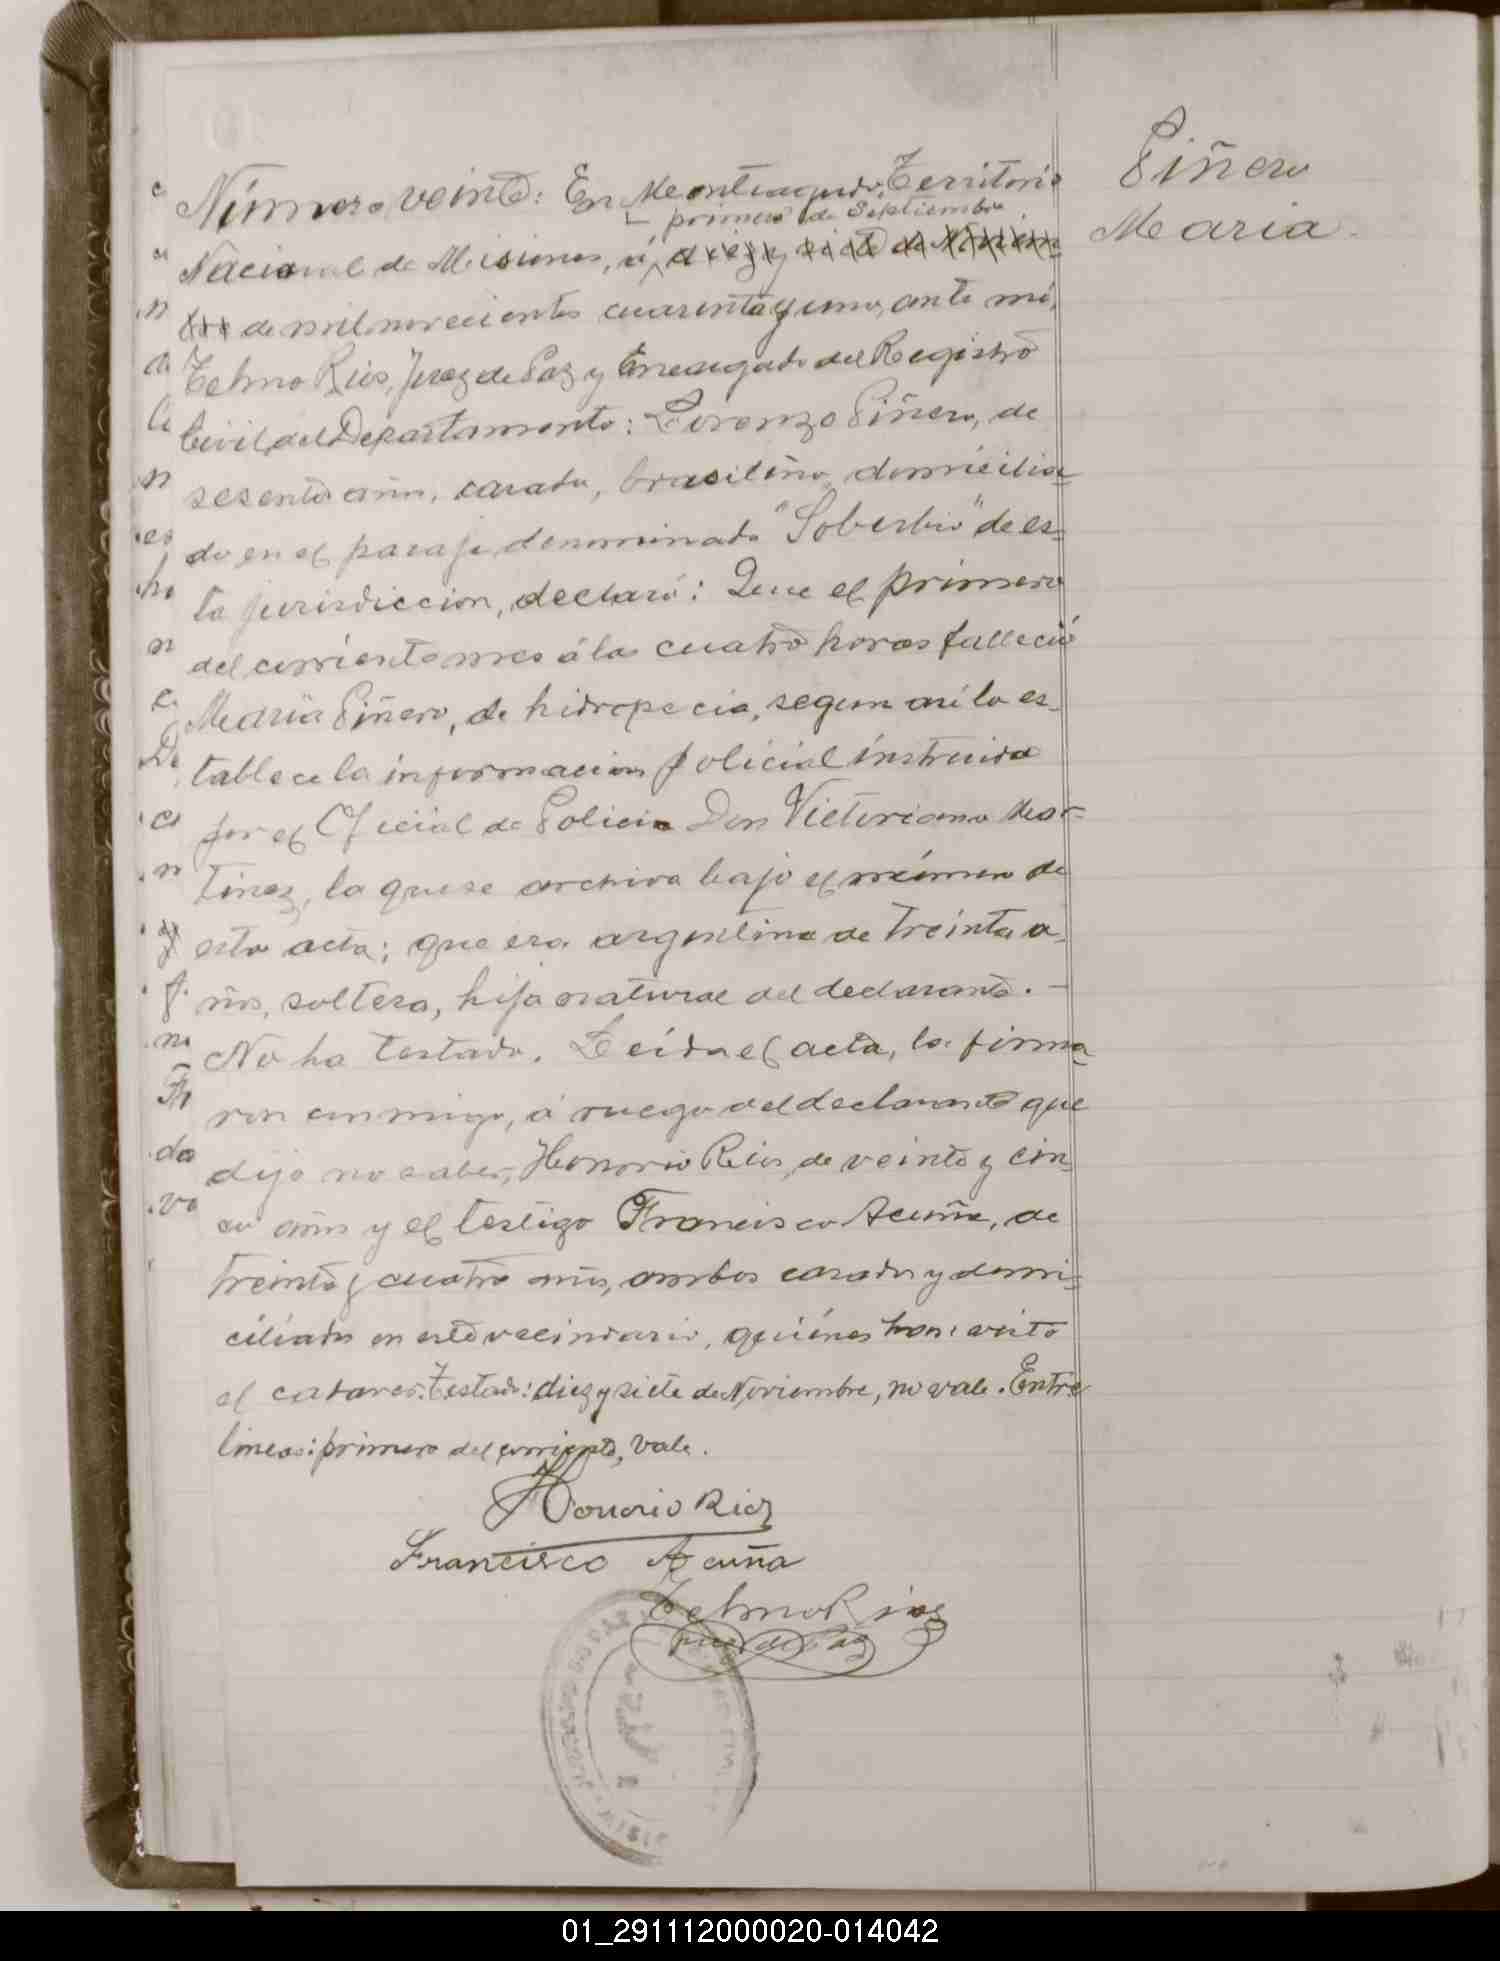 Piñero
Maria.
Número veinte: En Monteagudo, Territorio
primero de Septiembre
Nacional de Misiones, á, diez y siete de Noviem
bre de mil novecientos cuarenta y uno, ante mi,
Telmo Rios, Juez de Paz y Encargado del Registro
Civil del Departamento: Lorenzo Piñero, de
sesenta años, casado, brasileño, domicilia-
do en el paraje denominado "Soberbio" de es-
ta jurisdiccion, declaró: Que el primero
del corriente mes á las cuatro horas falleció
Maria Piñero, de hidropecia, segun asi lo es-
tablece la informacion policial instruida
por el Oficial de Policia Don Victoriano Mar-
tinez, la que se archiva bajo el número de
esta acta; que era argentina de treinta a-
ños, soltera, hija natural del declarante.-
No ha testado. Leida el acta, la firma-
ron conmigo, á ruego del declarante que
dijo no saber, Honorio Rios, de veinte y cin-
co años y el testigo Francisco Acuña, de
treinta y cuatro años, ambos casados y domi-
ciliados en este vecindario, quiénes han visto
el cadaver. Testado: diez y siete de Noviembre, no vale. Entre
lineas: primero del corriente, vale.
Honorio Rios
Francisco Acuña
Telmo Rios
Juez de Paz
01_291112000020-014042